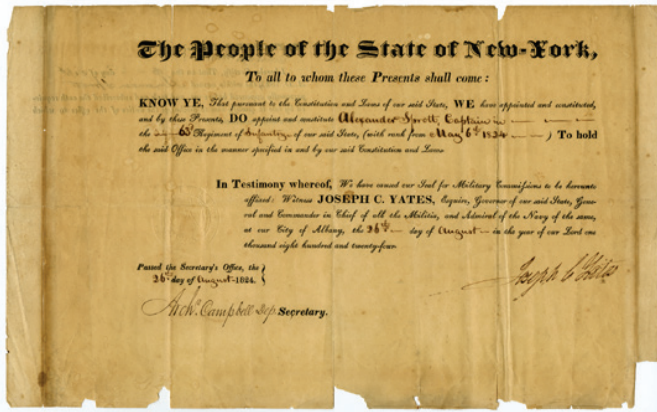 The People of the State of New-York,
To all to whom these Presents shall come:
KNOW YE, That pursuant to the Constitution and Laws of our said State, WE have appointed and constituted,
and by these Presents, DO appoint and constitute Alexander Sprott, Captain in
the 63d Regiment of Infantry of our said State, (with rank from May 6th 1824 ) To hold
the said Office in the manner specified in and by our said Constitution and Laws.
In Testimony whereof, We have caused our Seal for Military Commissions to be hereunto
affixed: Witness JOSEPH C. YATES, Esquire, Governor of our said State, Gene-
ral and Commander in Chief of all the Militia, and Admiral of the Navy of the same,
at our City of Albany, the 26th day of August in the year of our Lord one
thousand eight hundred and twenty-four.
Passed the Secretary's Office, the
26th day of August 1824.
Joseph C Yates
Archd. Campbell Dep. Secretary.